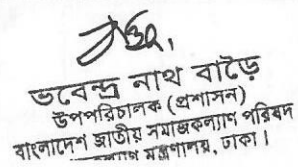 ভবেন্দ্র নাথ বাড়ৈ
উপপরিচালক (প্রশাসন)
বাংলাদেশ জাতীয় সমাজকল্যাণ পরিষদ
মন্ত্রণালয়, ঢাকা।